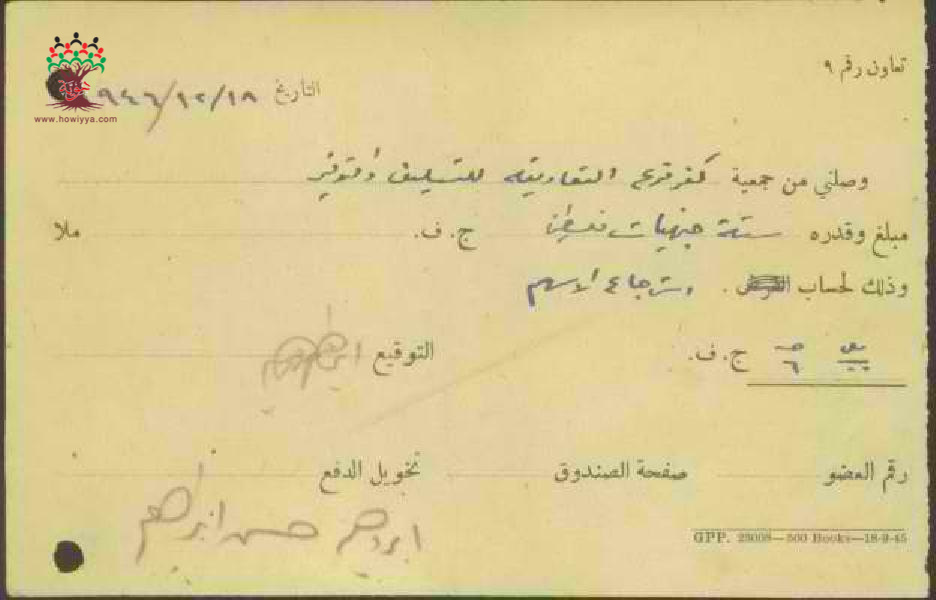 تعاون رقم ٩
التاريخ ١٩٤٦/١٢/١٨
هوية
www.howiyya.com
وصلني من جمعية كفرقرع التعاونية للتسليف والتوفير
مبلغ وقدره ستة جنيهات ج. ف. ملا
وذلك لحساب استرجاع الاسهم
٦ ج. ف.
التوقيع
رقم العضو صفحة الصندوق تخويل الدفع
ابراهيم حسن ابراهيم
GPP. 23008—500 Books—18-9-45